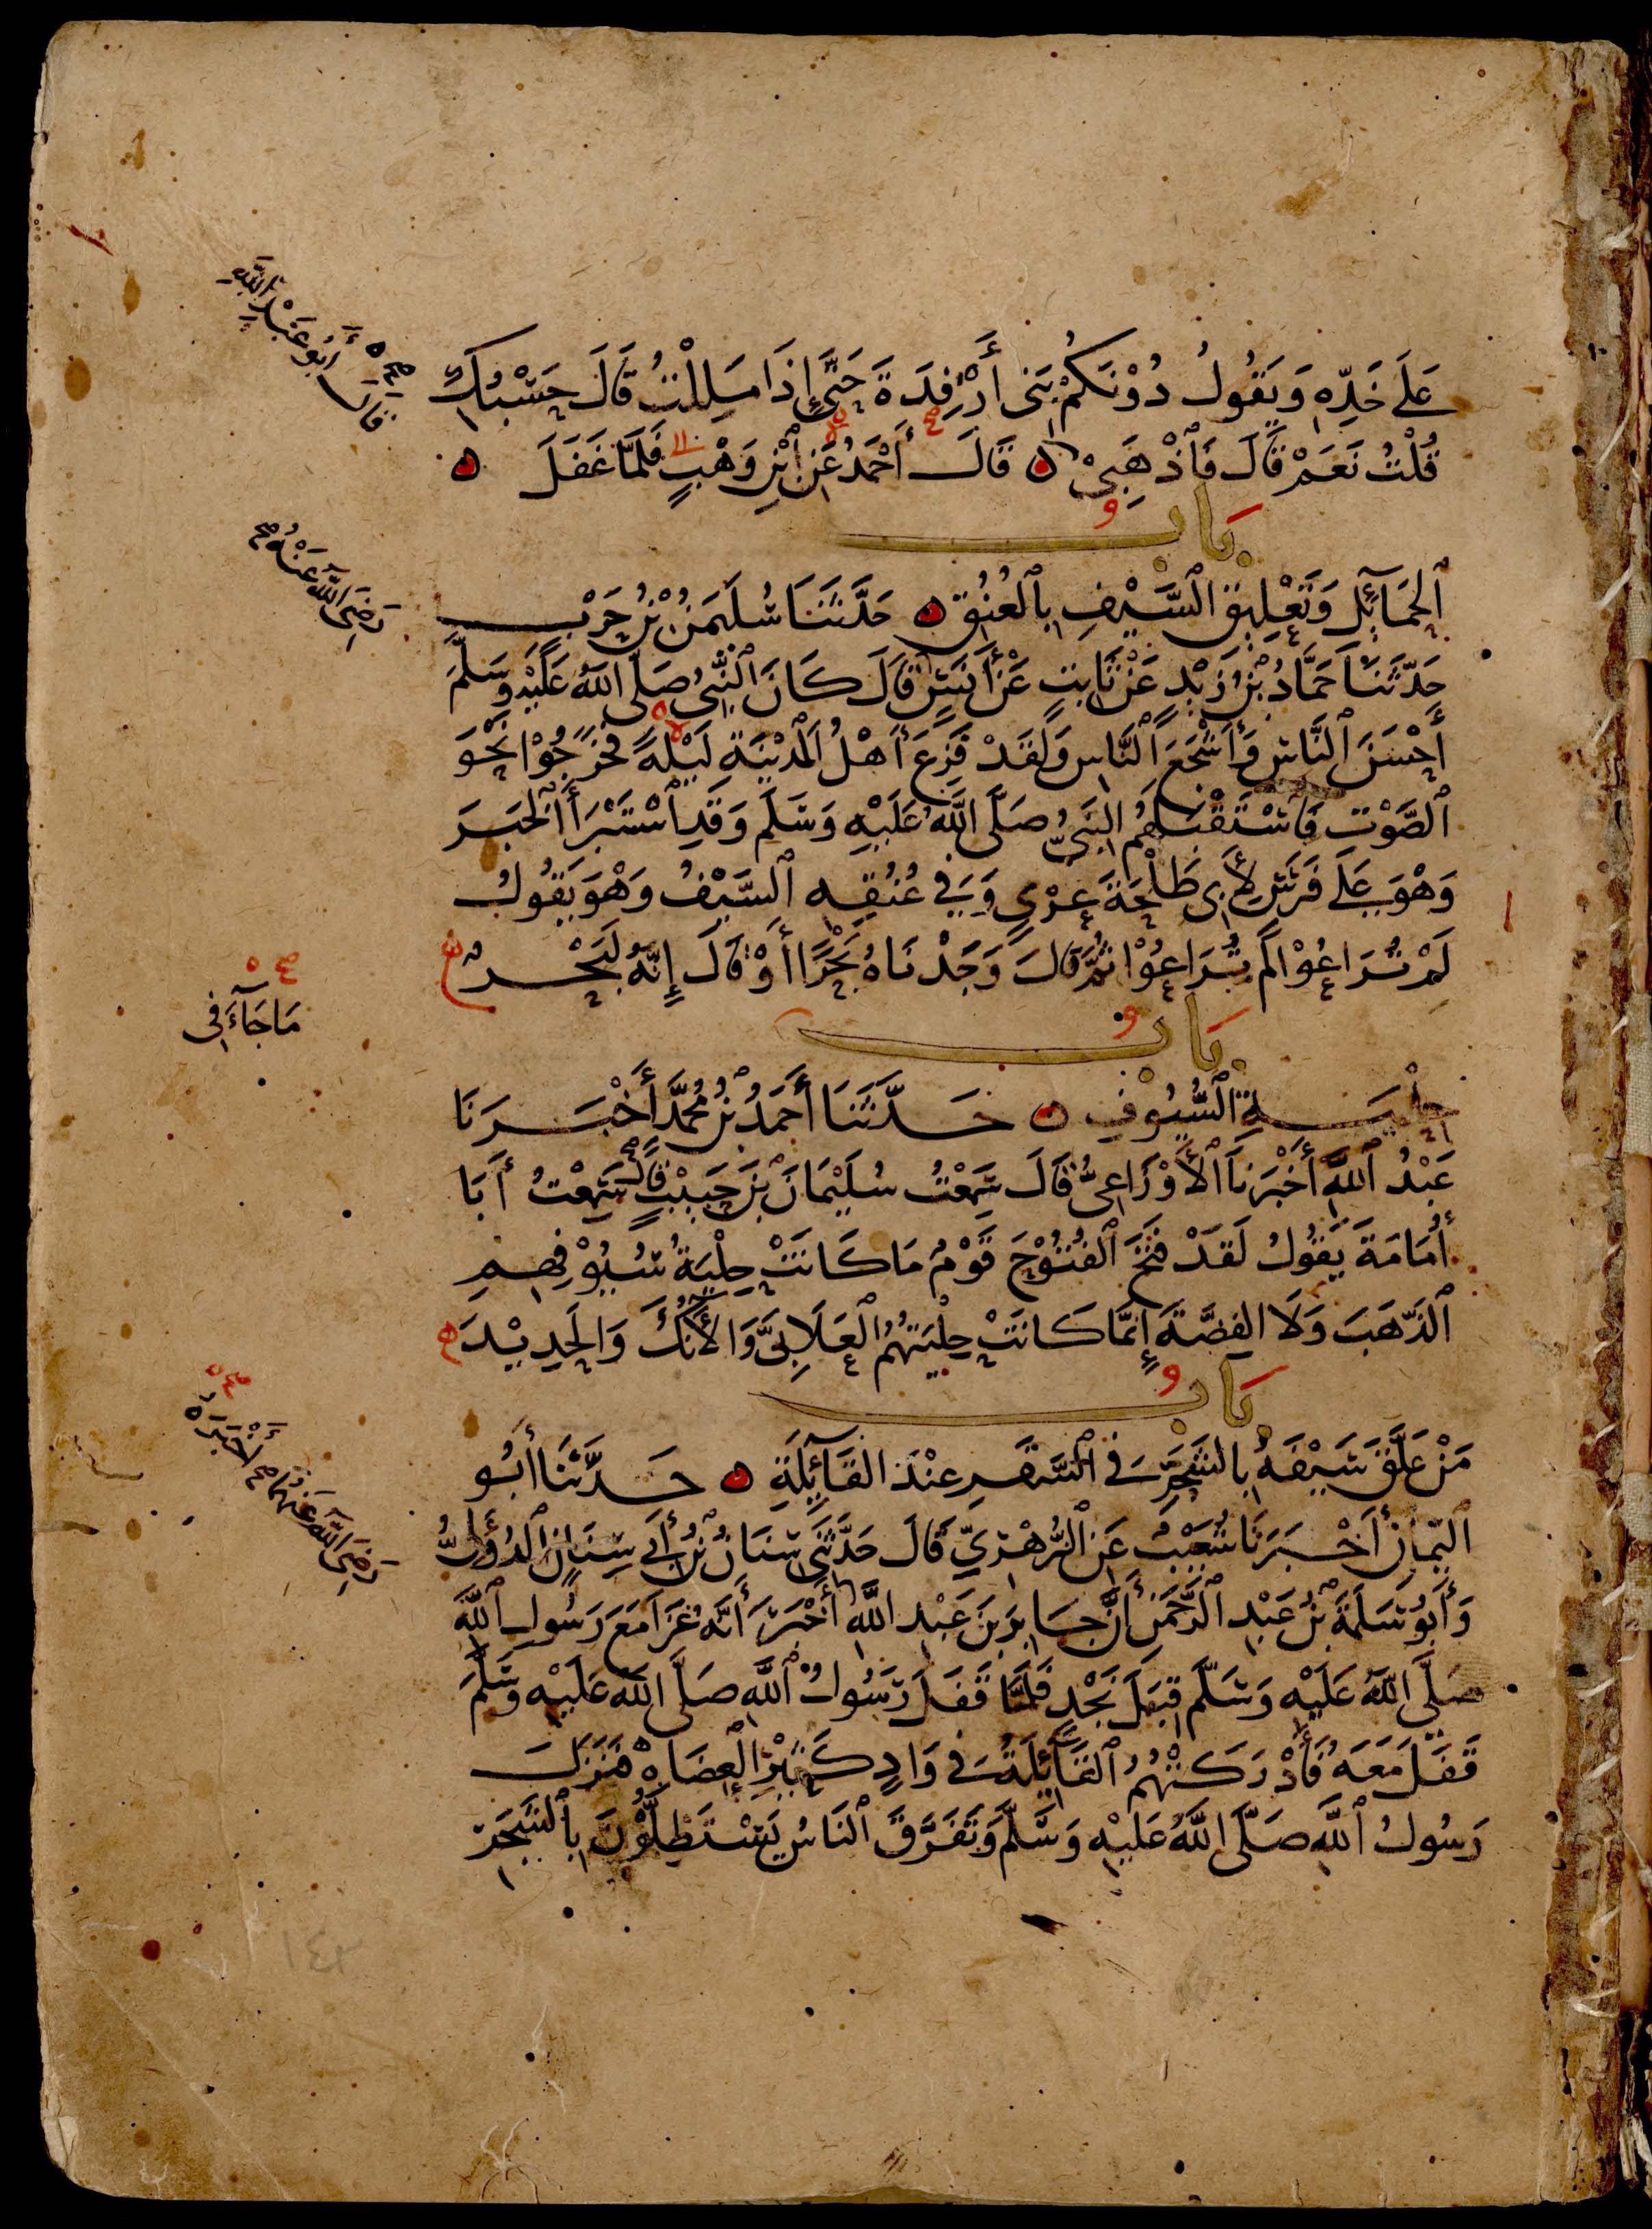 عَلَى خَدِّهِ وَيَقُولُ دُوْنَكُمْ بَنِى أَرْفِدَةَ حَتَّى إِذَا مَلِلْتُ قَالَ حَسْبُكِ
قُلْتُ نَعَمْ قَالَ فَٱذْهَبِىْ ۝ قَالَ أَحْمَدُ عَنِ ٱبْنِ وَهْبٍ فَلَمَّا غَفَلَ ۝
صح ه قَالَ أَبُو عَبْدِ ٱللَّهِ
بَابُ
ٱلْحَمَآئِلِ وَتَعْلِيقِ ٱلسَّيْفِ بِٱلْعُنُقِ ۝ حَدَّثَنَا سُلَيْمَنُ بْنُ حَرْبٍ
رَضِىَ ٱللَّهُ عَنْهُ صح
حَدَّثَنَا حَمَّادُ بْنُ زَيْدٍ عَنْ ثَابِتٍ عَنْ أَنَسٍ قَالَ كَانَ ٱلنَّبِىُّ صَلَّى ٱللَّهُ عَلَيْهِ وَسَلَّمَ
أَحْسَنَ ٱلنَّاسِ وَأَشْجَعَ ٱلنَّاسِ وَلَقَدْ فَزِعَ أَهْلُ ٱلْمَدِيْنَةِ لَيْلَةً فَخَرَجُوْا نَحْوَ
ٱلصَّوْتِ فَاسْتَقْبَلَهُمُ النَّبِىُّ صَلَّى اللَّهُ عَلَيْهِ وَسَلَّمَ وَقَدِ ٱسْتَبْرَأَ ٱلْخَبَرَ
وَهْوَ عَلَى فَرَسٍ لِأَبِى طَلْحَةَ عُرْىٍ وَفِي عُنُقِهِ ٱلسَّيْفُ وَهْوَ يَقُولُ
لَمْ تُرَاعُوْا لَمْ تُرَاعُوْا ثُمَّ قَالَ وَجَدْنَاهُ بَحْرًا أَوْ قَالَ إِنَّهُ لَبَحْرٌ
بَابُ
صح ه مَا جَآءَ فِى
حِلْيَةِ ٱلسُّيُوْفِ ۝ حَدَّثَنَا أَحْمَدُ بْنُ مُحَمَّدٍ أَخْبَرَنَا
عَبْدُ ٱللَّهِ أَخْبَرَنَا ٱلْأَوْزَاعِىُّ قَالَ سَمِعْتُ سُلَيْمَانَ بْنَ حَبِيْبٍ قَالَ سَمِعْتُ أَبَا
أُمَامَةَ يَقُولُ لَقَدْ فَتَحَ ٱلْفُتُوْحَ قَوْمٌ مَا كَانَتْ حِلْيَةُ سُيُوْفِهِمِ
ٱلذَّهَبَ وَلَا الْفِضَّةَ إِنَّمَا كَانَتْ حِلْيَتُهُمُ ٱلْعَلَابِىَّ وَٱلْآنُكَ وَالْحَدِيْدَ ه
بَابُ
مَنْ عَلَّقَ سَيْفَهُ بِالشَّجَرِ فِى ٱلسَّفَرِ عِنْدَ الْقَآئِلَةِ ۝ حَدَّثَنَا أَبُو
ٱلْيَمَانِ أَخْبَرَنَا شُعَيْبٌ عَنِ الزُّهْرِيِّ قَالَ حَدَّثَنِى سِنَانُ بْنُ أَبِي سِنَانٍ ٱلدُّؤَلِىُّ
وَأَبُو سَلَمَةَ بْنُ عَبْدِ ٱلرَّحْمَنِ أَنَّ جَابِرَ بْنَ عَبْدِ اللَّهِ أَخْبَرَ أَنَّهُ غَزَا مَعَ رَسُولِ ٱللَّهِ
صح ه رَضِىَ ٱللَّهُ عَنْهُمَا صح أَخْبَرَهُ
صَلَّى اللَّهُ عَلَيْهِ وَسَلَّمَ قِبَلَ نَجْدٍ فَلَمَّا قَفَلَ رَسُوْلُ ٱللَّهِ صَلَّى اللَّهُ عَلَيْهِ وَسَلَّمَ
قَفَلَ مَعَهُ فَأَدْرَكَتْهُمُ ٱلْقَآئِلَةُ فِى وَادٍ كَثِيْرِ ٱلْعِضَاهِ فَنَزَلَ
رَسُولُ ٱللَّهِ صَلَّى اللَّهُ عَلَيْهِ وَسَلَّمَ وَتَفَرَّقَ ٱلنَّاسُ يَسْتَظِلُّوْنَ بِٱلشَّجَرِ
١٤٢